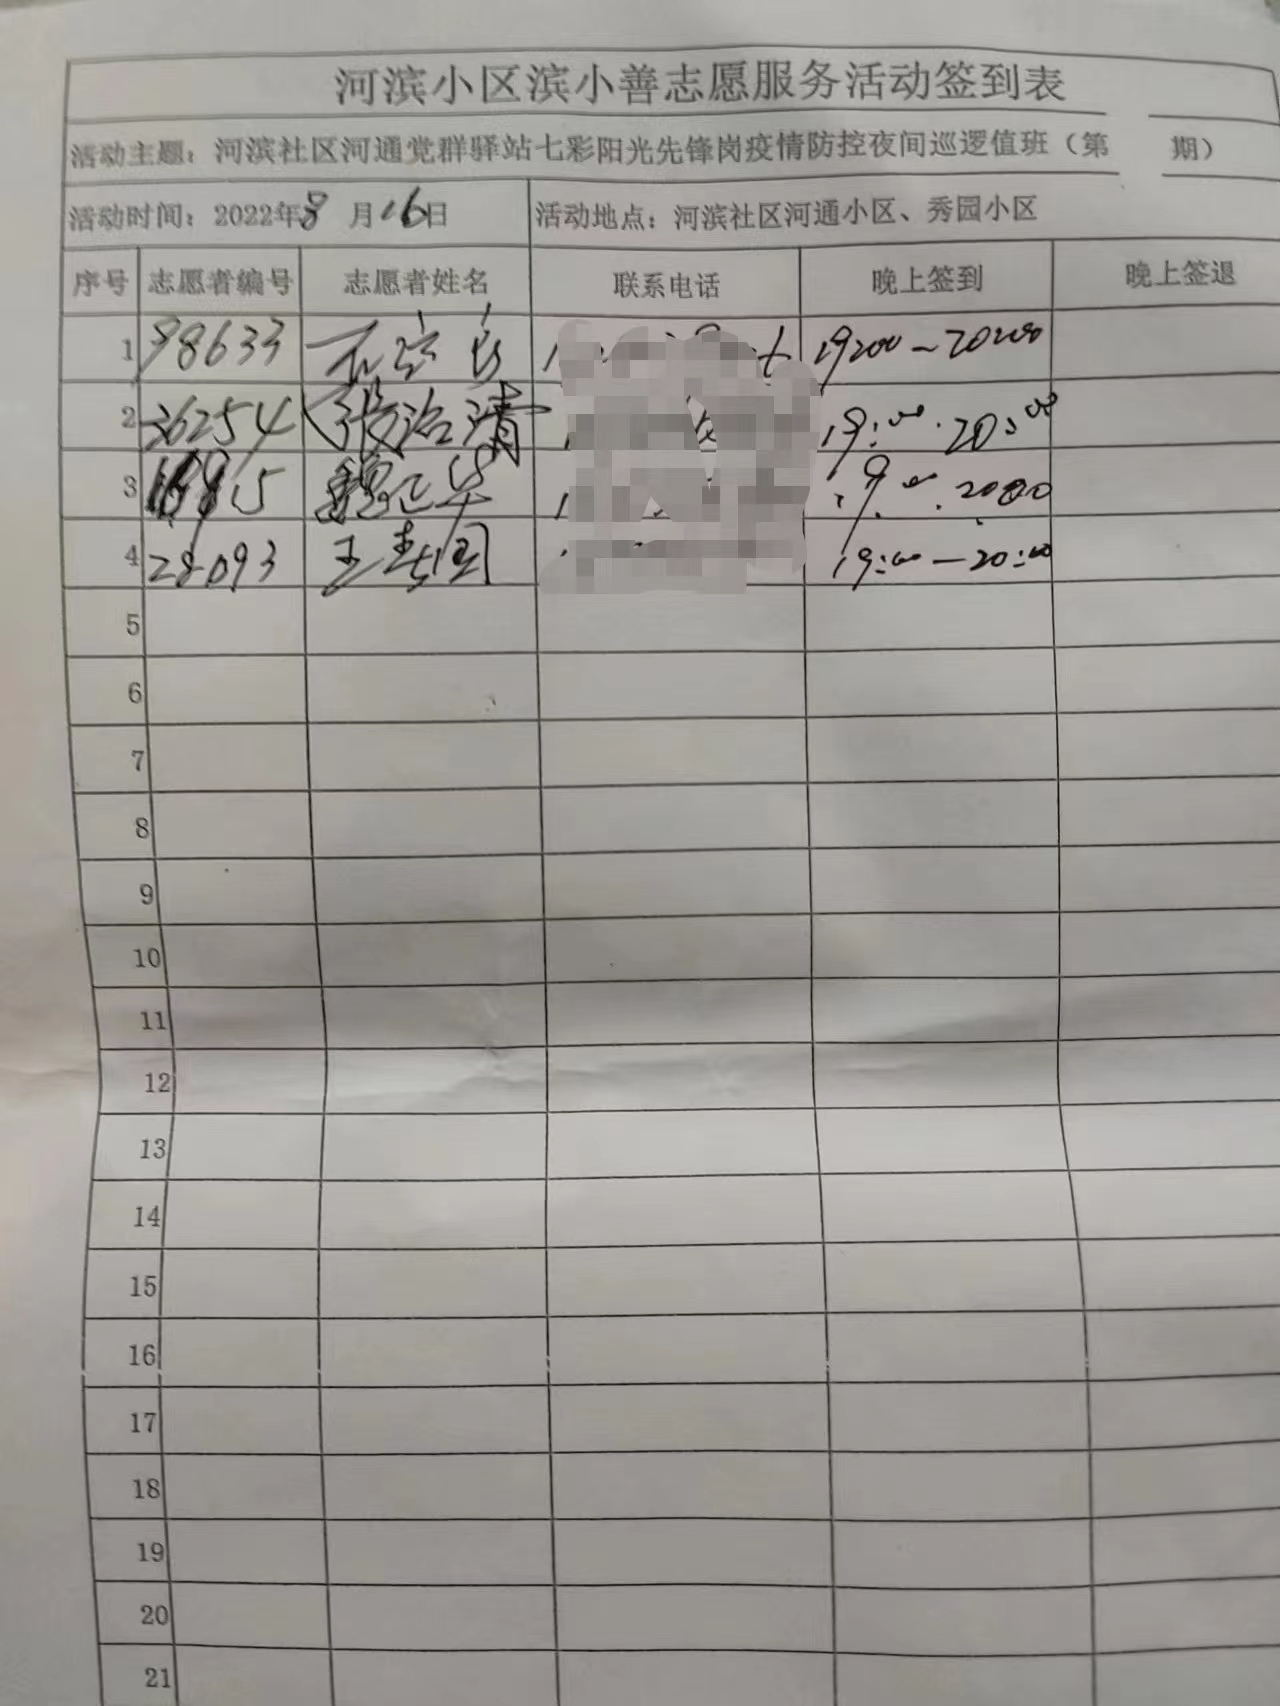 河滨小区滨小善志愿服务活动签到表
活动主题：河滨社区河通党群驿站七彩阳光先锋岗疫情防控夜间巡逻值班（第 期）
活动时间：2022年8月16日 活动地点：河滨社区河通小区、秀园小区
序号 志愿者编号 志愿者姓名 联系电话 晚上签到 晚上签退
1 98633 19:00-20:00
2 36254 张治清 19:00.20:00
3 魏正华 19:00.20:00
4 28093 王 19:00-20:00
5
6
7
8
9
10
11
12
13
14
15
16
17
18
19
20
21